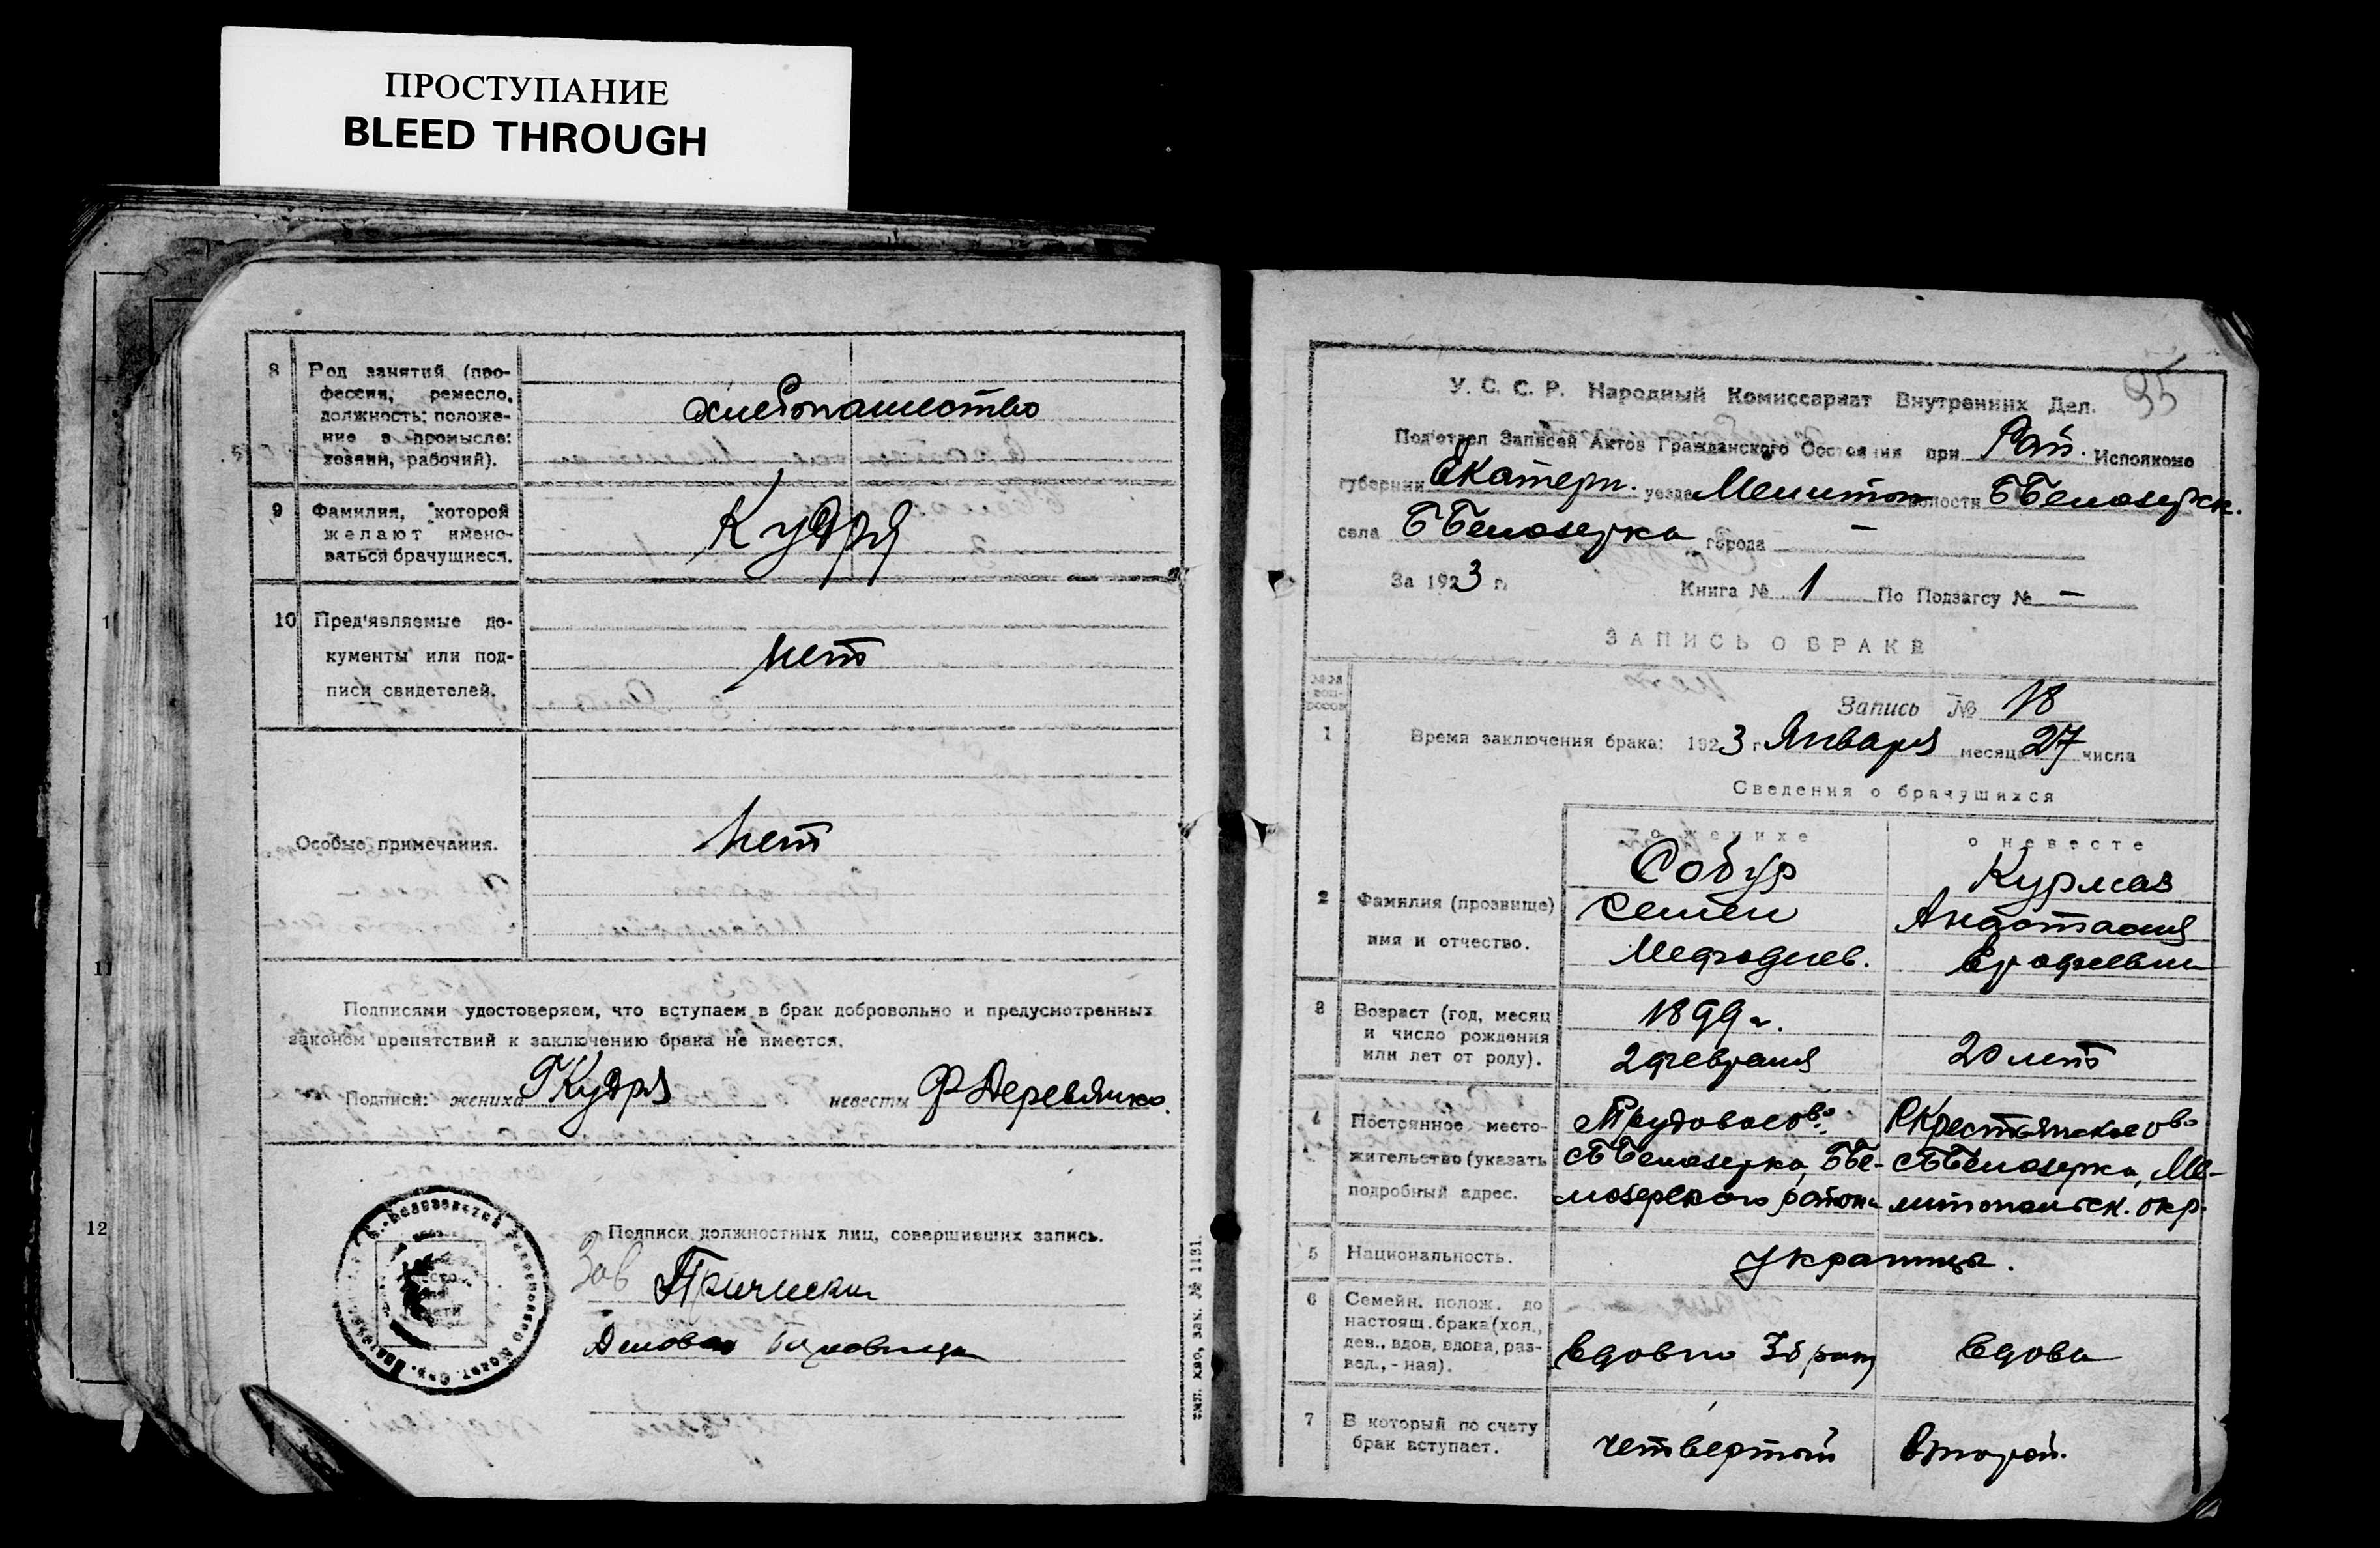 ПРОСТУПАНИЕ
BLEED THROUGH
8 Род занятий (про-
фессия, ремесло,
должность; положе-
ние в промысле:
хозяин, рабочий).
хлебопашество
9 Фамилия, которой
желают имено-
ваться брачущиеся.
Кудря
10 Пред'являемые до-
кументы или под-
писи свидетелей.
нет
Особые примечания.
нет
Подписями удостоверяем, что вступаем в брак добровольно и предусмотренных
законом препятствий к заключению брака не имеется.
Подписи: жениха ГКудря невесты Ф Деревянко.
Подписи должностных лиц, совершивших запись.
Зав
Делов
зак. № 1131.
1
11
12
35
У. С. С. Р. Народный Комиссариат Внутренних Дел.
Под'отдел Записей Актов Гражданского Состояния при Рай. Исполкоме
губернии Екатерин. уезда Мелитоп волости ББелозерск.
села ББелозерка города —
За 1923 г. Книга № 1 По Подзагсу № —
ЗАПИСЬ О БРАКЕ
№№ воп-
росов
Запись № 18
1 Время заключения брака: 1923 г Января месяца 27 числа
Сведения о брачущихся
о женихе о невесте
2 Фамилия (прозвище)
имя и отчество.
Собур
Семен
Мефодиев.
Курмаз
Анастасия
Ерофеевна
3 Возраст (год, месяц
и число рождения
или лет от роду).
1899 г.
2 февраля
20 лет
4 Постоянное место-
жительство (указать
подробный адрес.
Трудовое ов.
с ББелозерка, ББе-
лозерского района
Крестьянское ов.
с ББелозерка, Ме-
литопольск. окр.
5 Национальность.
Украинцы.
6 Семейн. полож. до
настоящ. брака (хол.,
дев., вдов, вдова, раз-
вед., - ная).
вдова
7 В который по счету
брак вступает.
четвертый
второй.